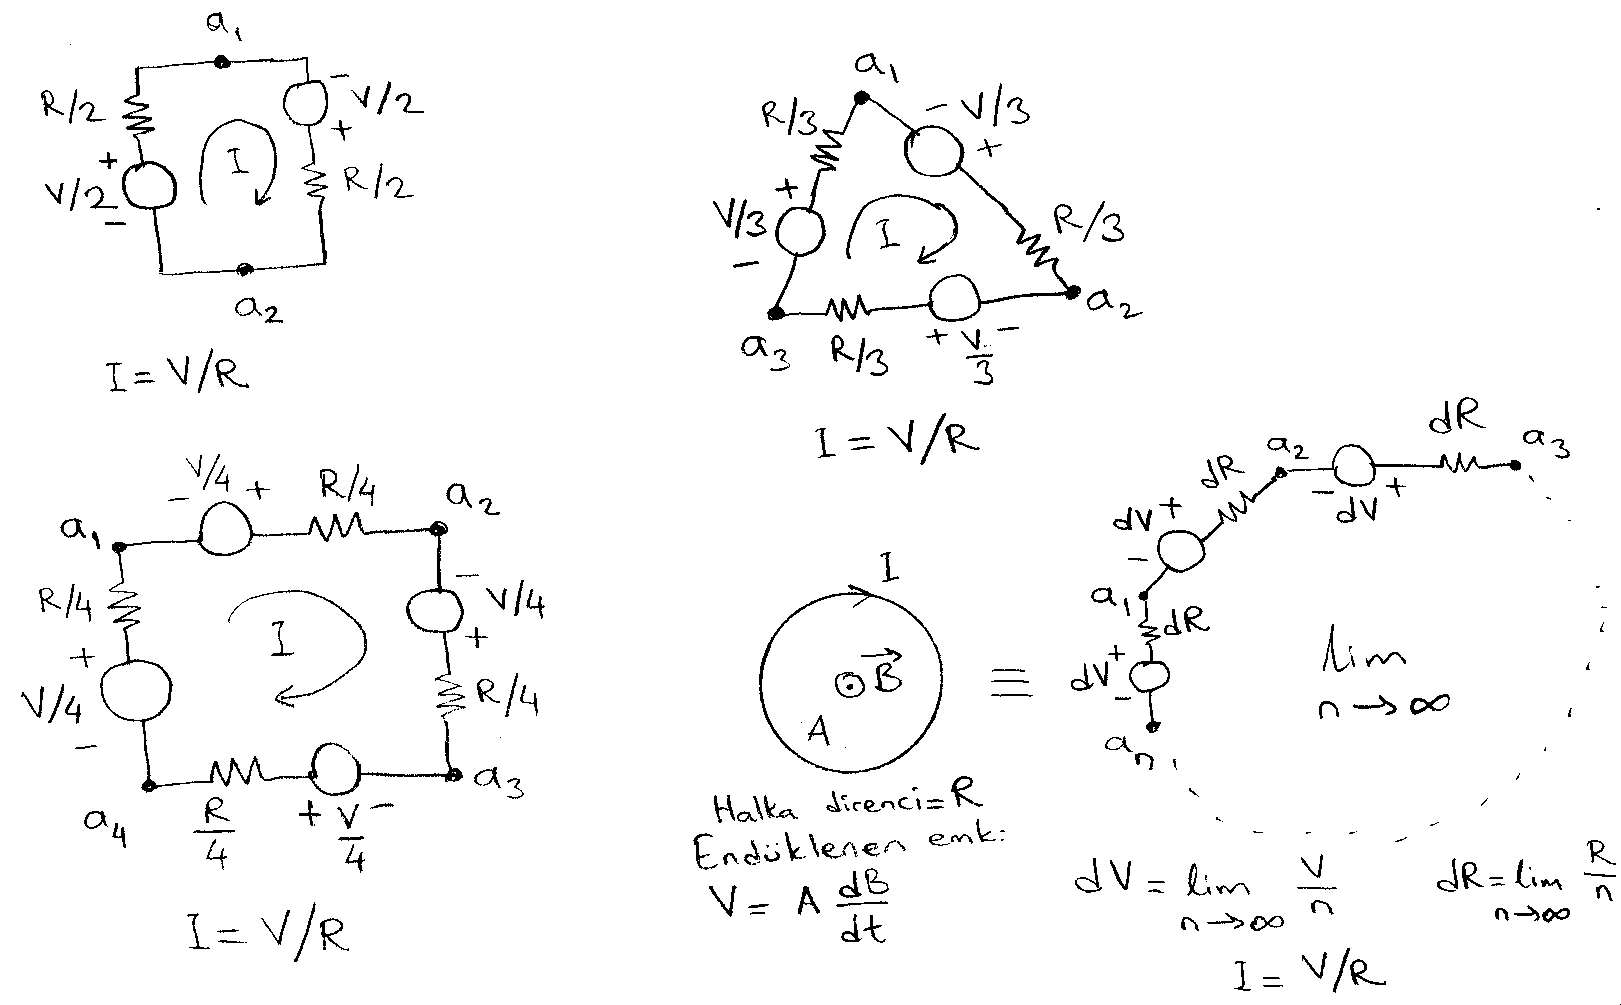 a₁
R/2
- V/2
+
+
V/2
-
I
R/2
a₂
I = V/R
a₁
R/3
- V/3
+
+
V/3
-
I
R/3
a₃
R/3
+ V/3 -
a₂
I = V/R
- V/4 +
R/4
a₁
a₂
R/4
+
V/4
-
I
- V/4
+
R/4
a₄
R/4
+ V/4 -
a₃
I = V/R
I
B
A
≡
Halka direnci = R
Endüklenen emk:
V = A dB/dt
dR
a₂
dR
a₃
dV +
-
- dV +
a₁
dR
dV +
-
aₙ
lim
n→∞
dV = lim V/n
n→∞
dR = lim R/n
n→∞
I = V/R